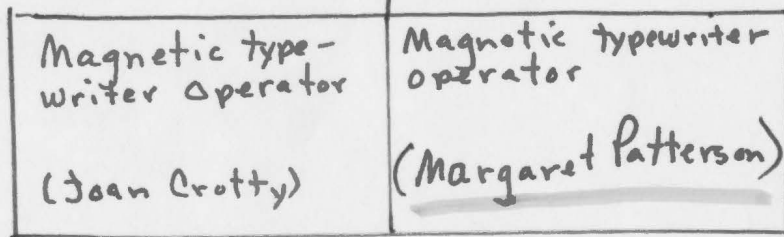 Magnetic type-
writer Operator
(Joan Crotty)
Magnetic typewriter
operator
(Margaret Patterson)